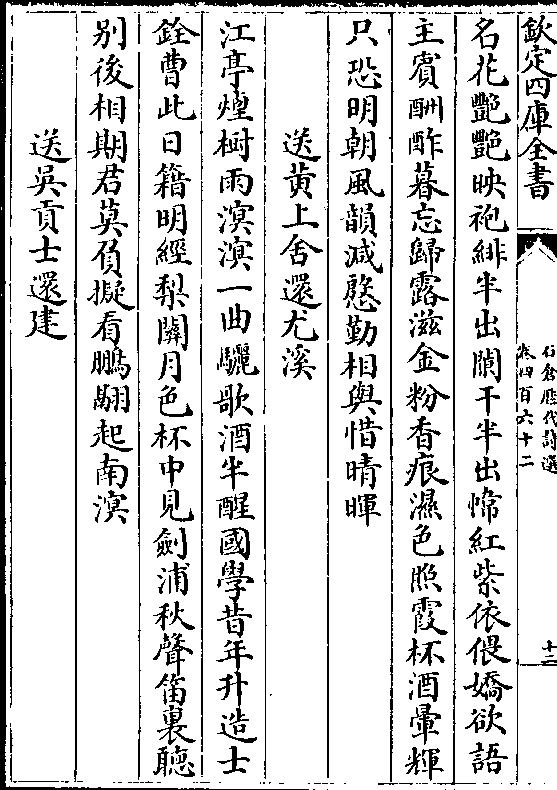 欽定四庫全書
石倉歷代詩選
卷四百六十二
十二
名花艷艷映袍緋半出闌干半出幃紅紫依偎嬌欲語
主賓酬酢暮忘歸露滋金粉香痕濕色照霞杯酒暈輝
只恐明朝風韻减慇勤相與惜晴暉
送黄上舍還尤溪
江亭煌樹雨溟溟一曲驪歌酒半醒國學昔年升造士
銓曹此日籍明經梨關月色杯中見劍浦秋聲笛裏聽
别後相期君莫負擬看鵬翮起南溟
送吳貢士還建